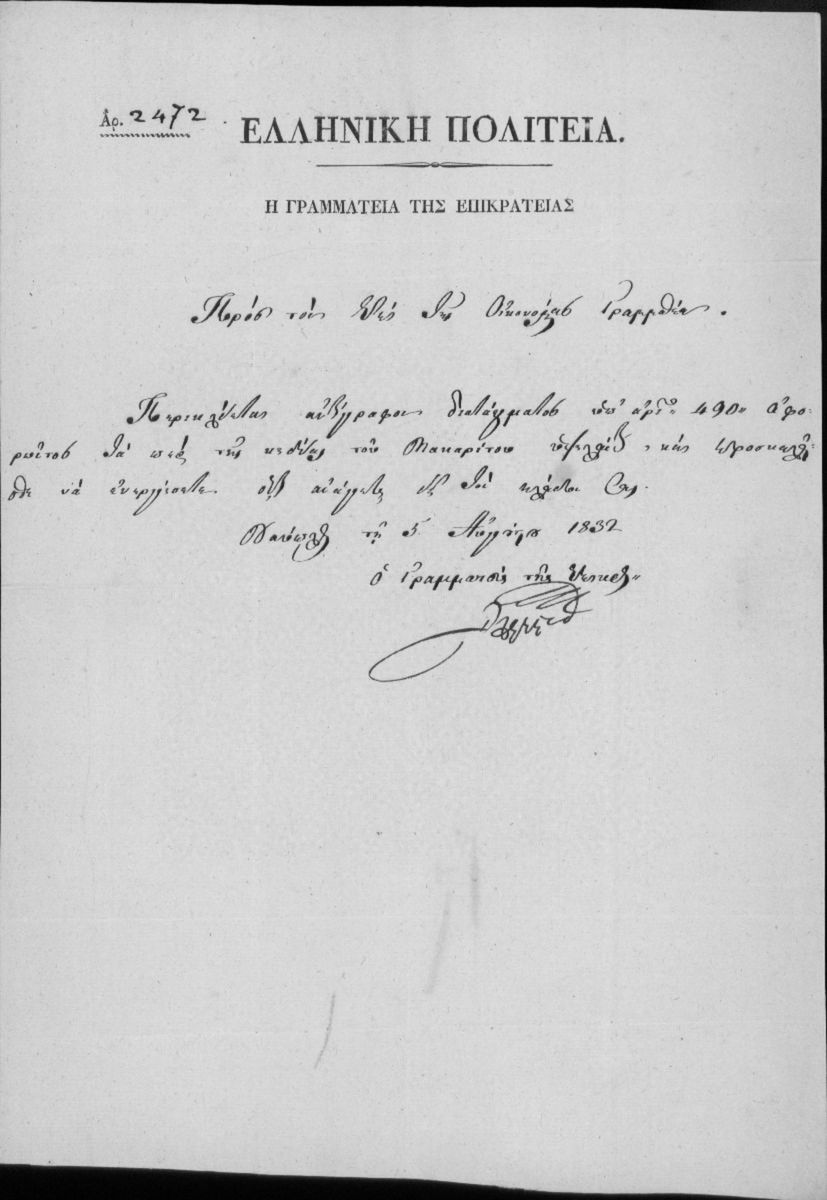 Ἀρ. 2472
ΕΛΛΗΝΙΚΗ ΠΟΛΙΤΕΙΑ.
Η ΓΡΑΜΜΑΤΕΙΑ ΤΗΣ ΕΠΙΚΡΑΤΕΙΑΣ
Πρὸς τὸν ἐπὶ τῆς Οἰκονομίας Γραμματέα.
Περικλείεται ἀντίγραφον διατάγματος ὑπ' ἀριθ. 490 ἀφο-
ρῶντος τὰ περὶ τῆς κηδείας τοῦ Μακαρίτου καὶ προσκαλεῖ-
σθε νὰ ἐνεργήσετε
τῇ 5 Αὐγούστου 1832
ὁ Γραμματεὺς τῆς Ἐπικρ